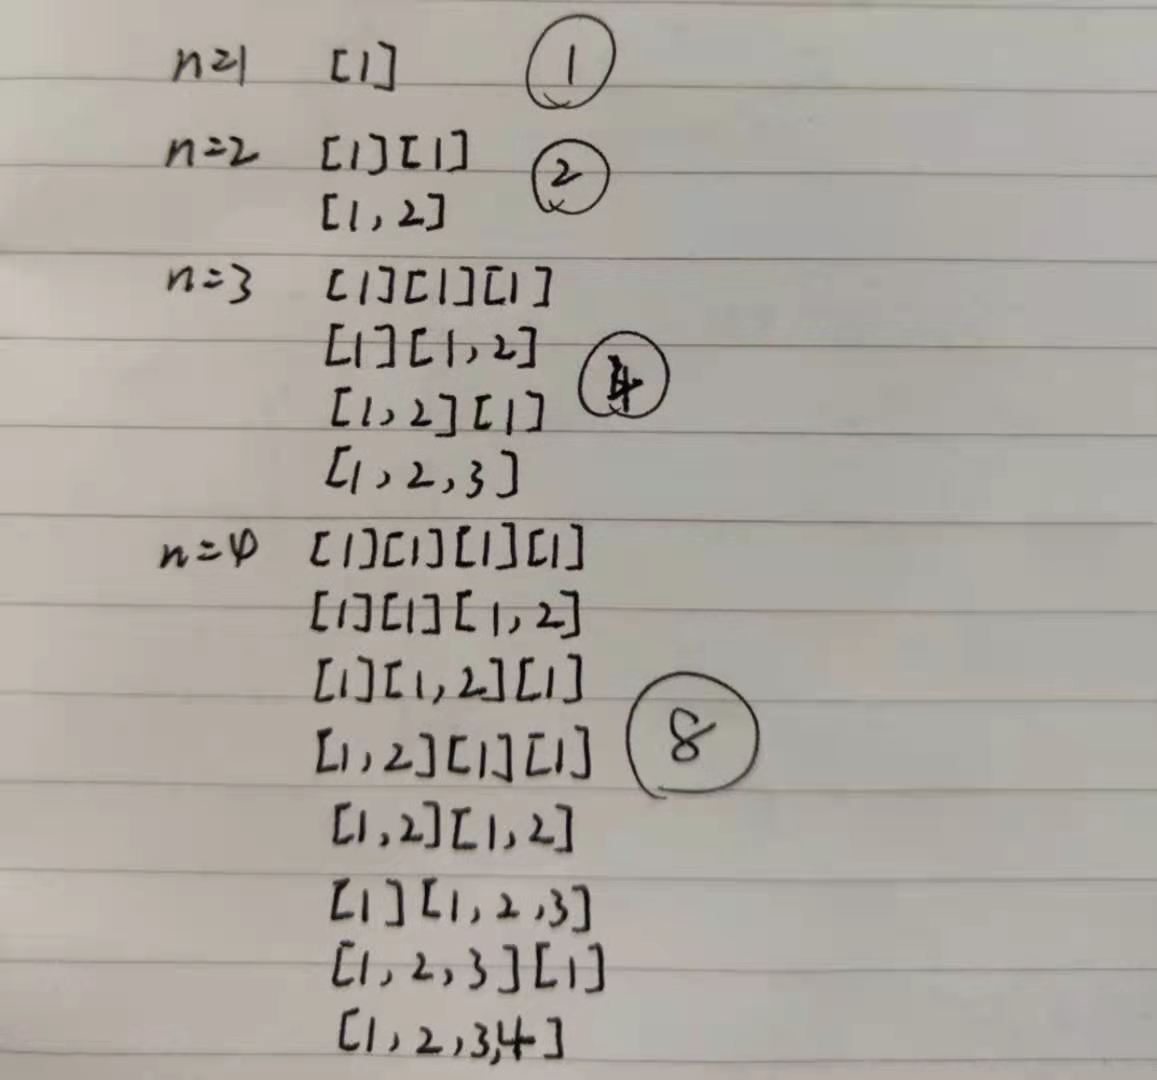 n=1 [1] 1
n=2 [1][1]
[1,2] 2
n=3 [1][1][1]
[1][1,2]
[1,2][1] 4
[1,2,3]
n=4 [1][1][1][1]
[1][1][1,2]
[1][1,2][1]
[1,2][1][1] 8
[1,2][1,2]
[1][1,2,3]
[1,2,3][1]
[1,2,3,4]